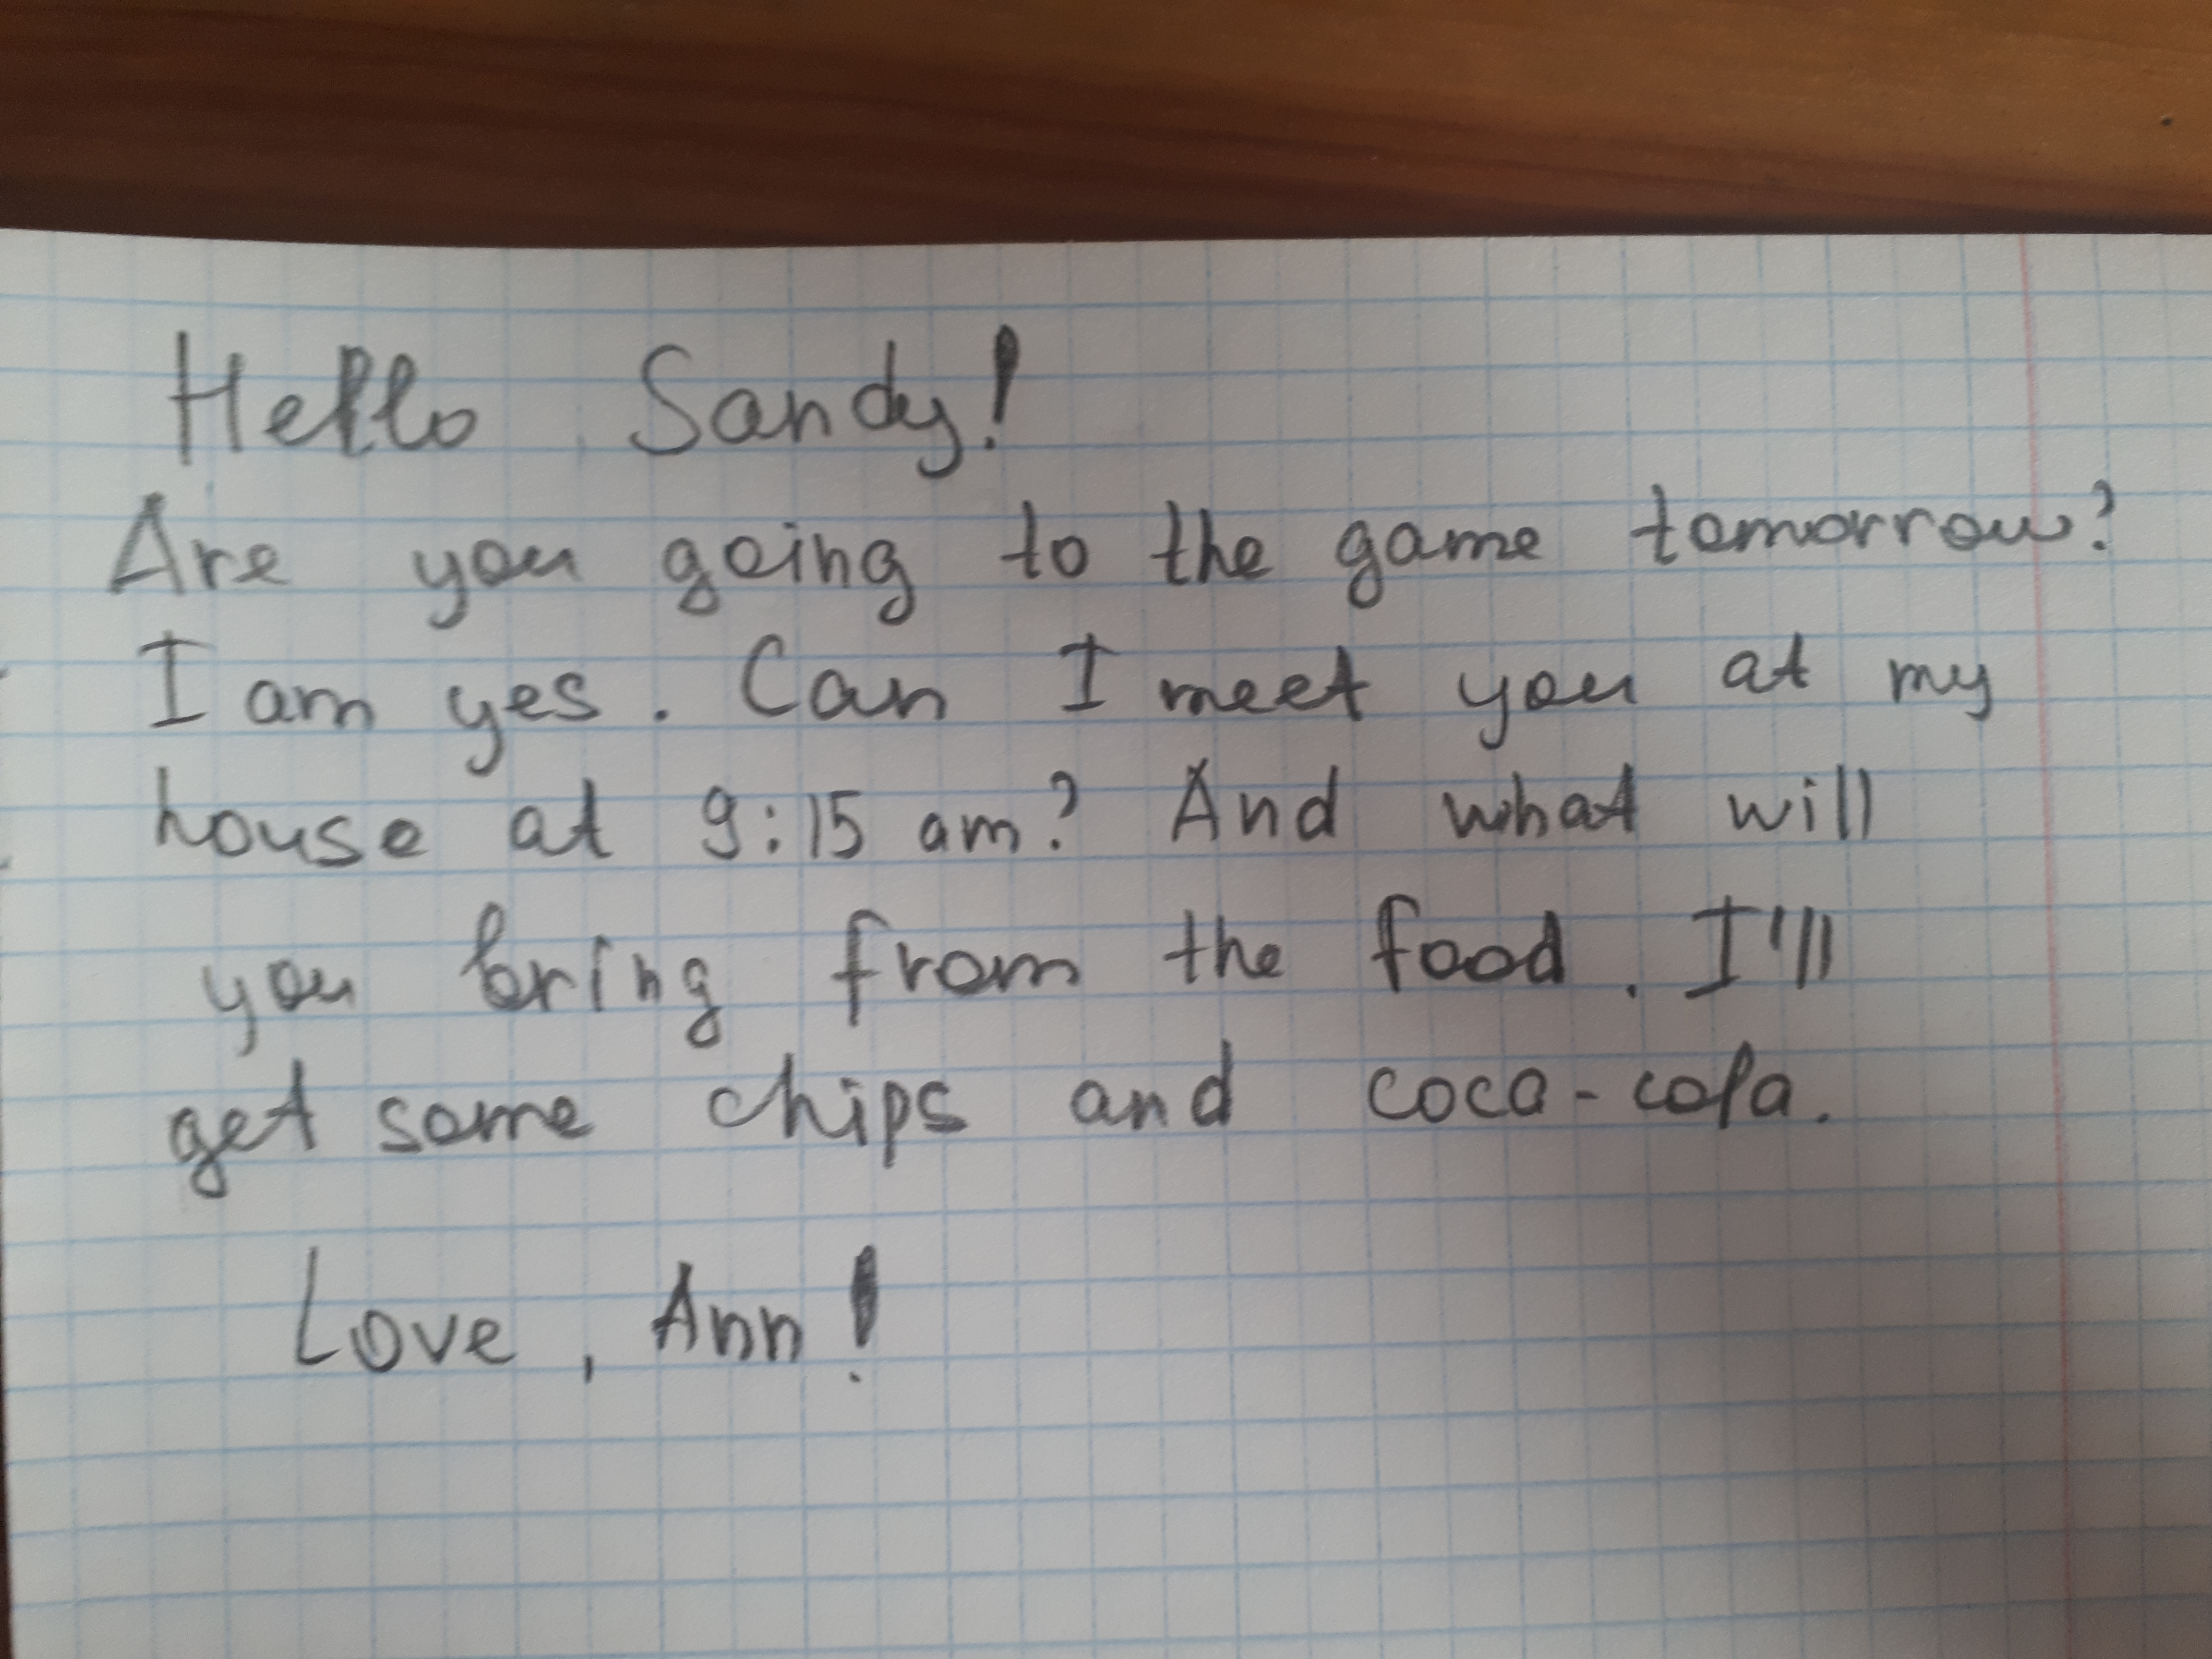 Hello Sandy!
Are you going to the game tomorrow?
I am yes. Can I meet you at my
house at 9:15 am? And what will
you bring from the food. I'll
get some chips and coca-cola.
Love, Ann!